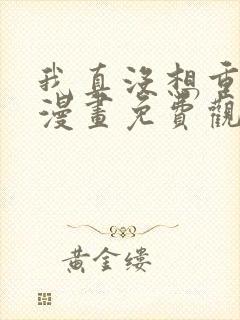 我真没想重
漫畫免費觀
黃金縷